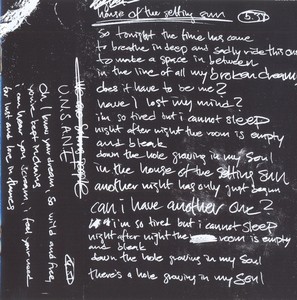 house of the setting sun
so tonight the time has come
to breathe in deep and sadly ride this one
to make a space in between
in the line of all my broken dreams
does it have to be me?
have I lost my mind?
i'm so tired but i cannot sleep
night after night the room is empty
and bleak
down the hole growing in my soul
in the house of the setting sun
another night has only just begun
can i have another one?
i'm so tired but i cannot sleep
night after night the room is empty
and bleak
down the hole growing in my soul
there's a hole growing in my soul
UNSANE
oh i know your dream, so wild and free,
you've kept
i can hear you scream, i feel your need
for lust and love in flames